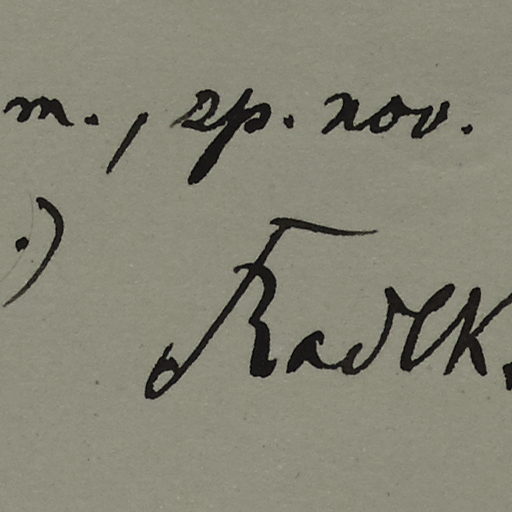 m., sp. nov.
.)
Radlk.